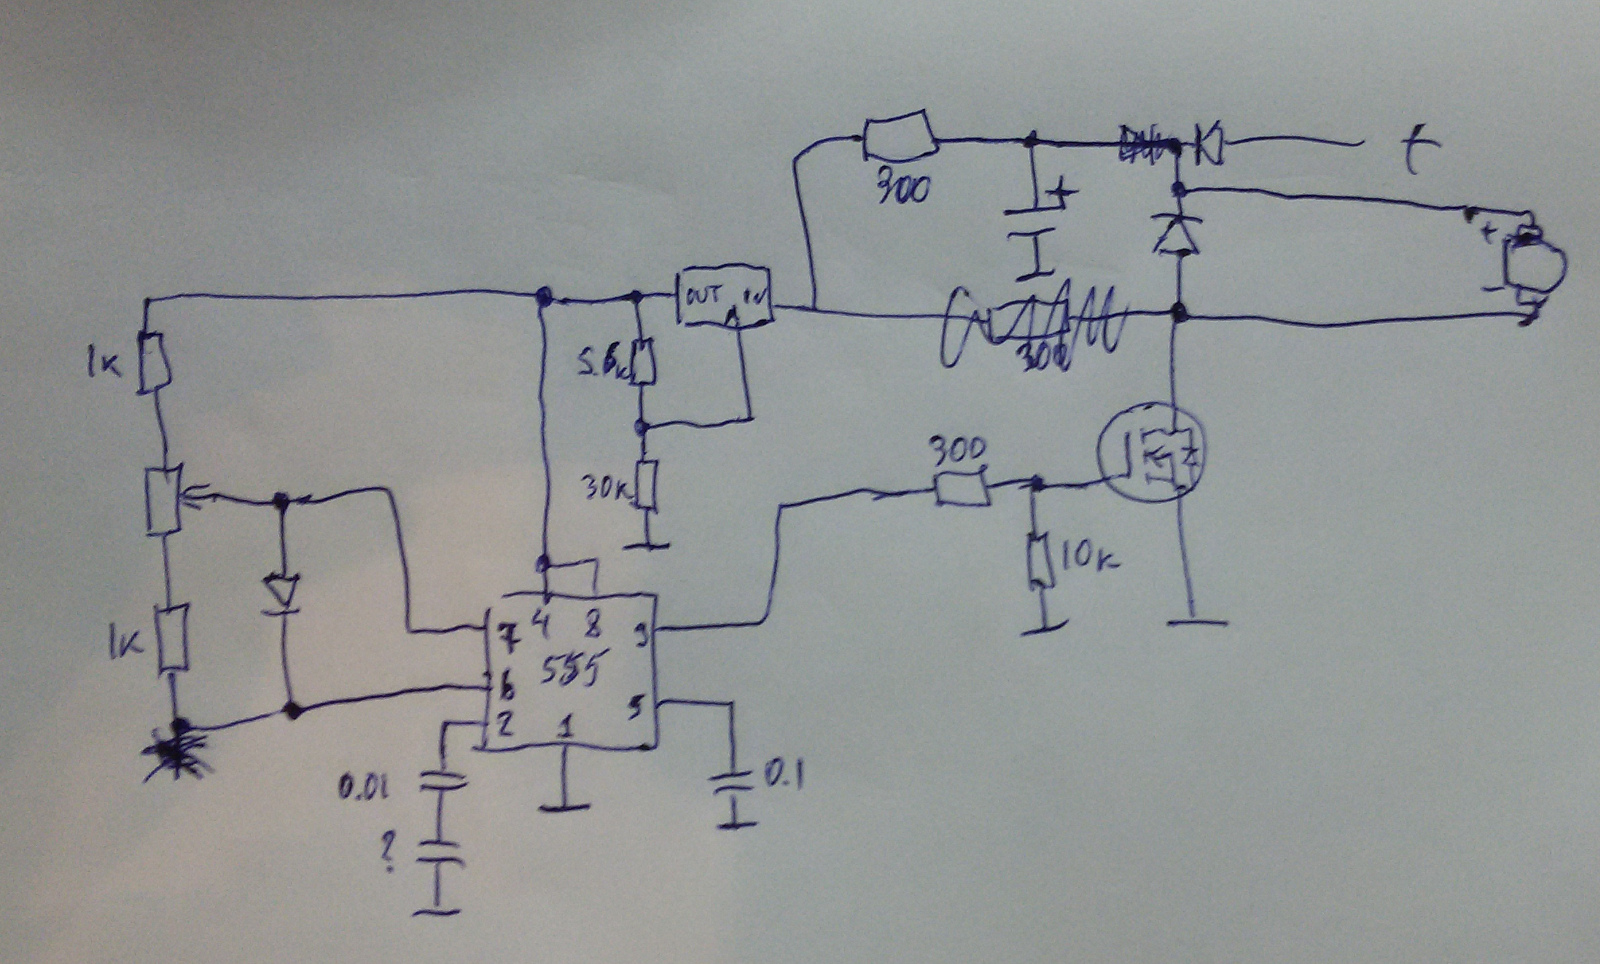 +
300
+
+
-
OUT IN
1K
5.6K
300
300
30K
10K
4 8
7 3
555
1K
6
5
2 1
0.01
0.1
?